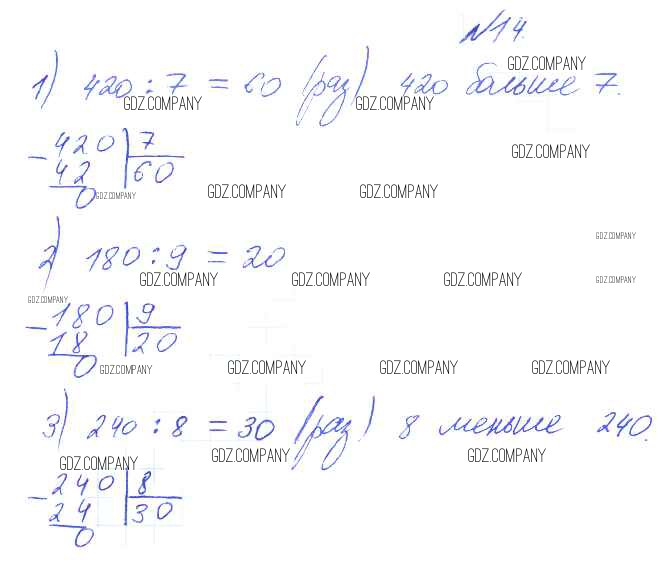 №14.
1) 420 : 7 = 60 (раз) 420 больше 7.
GDZ.COMPANY
GDZ.COMPANY GDZ.COMPANY
- 420 | 7
42 60
0
GDZ.COMPANY
GDZ.COMPANY GDZ.COMPANY GDZ.COMPANY
2) 180 : 9 = 20
GDZ.COMPANY
GDZ.COMPANY GDZ.COMPANY GDZ.COMPANY GDZ.COMPANY
GDZ.COMPANY
- 180 | 9
18 20
0
GDZ.COMPANY GDZ.COMPANY GDZ.COMPANY GDZ.COMPANY
3) 240 : 8 = 30 (раз) 8 меньше 240.
GDZ.COMPANY GDZ.COMPANY GDZ.COMPANY
- 240 | 8
24 30
0